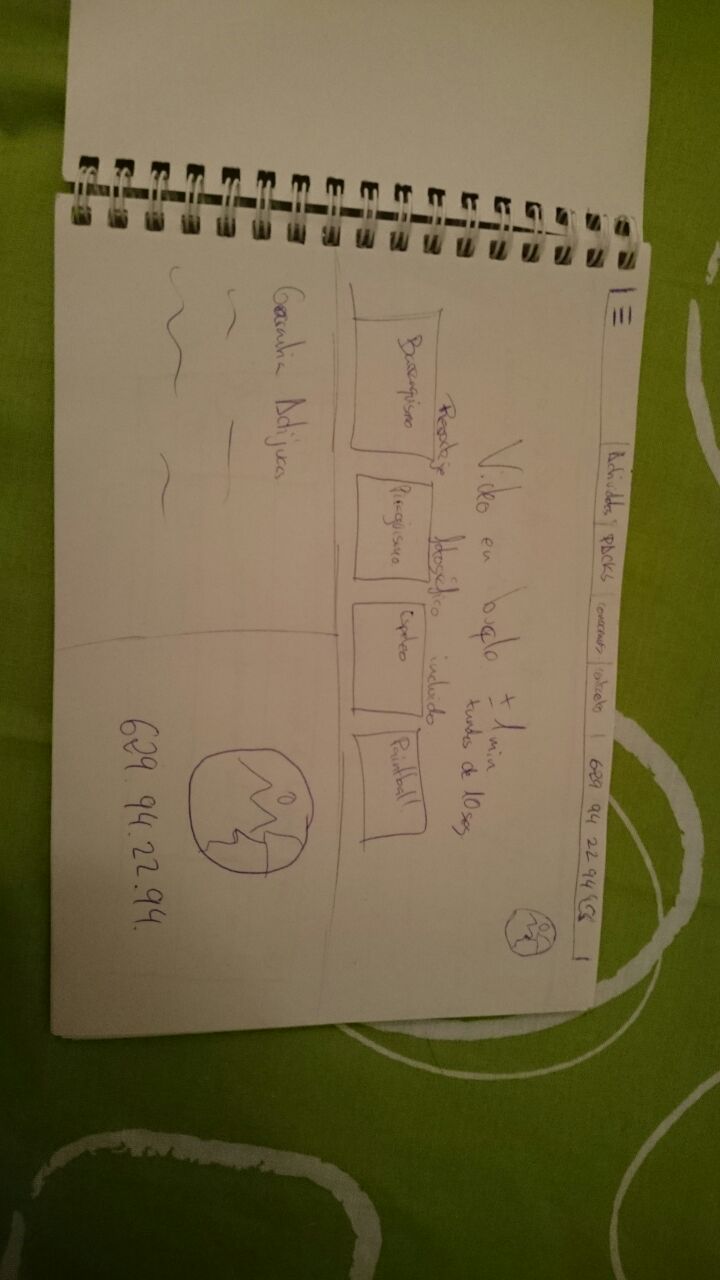 Actividades | PACKS | conocenos | contacto | 629 94 22 94
Video en bucle ± 1 min
tundas de 10 seg
Reportaje fotográfico incluido
Barranquismo
Piragüismo
Espeleo
Paintball
Garantia
629.94.22.94.